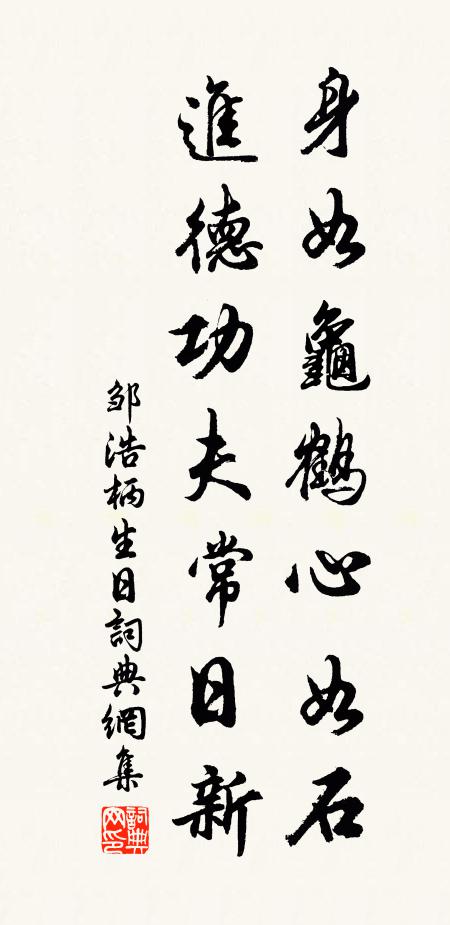 身如龜鶴心如石
進德功夫常日新
邹浩柄生日詞典網集
詞典网印